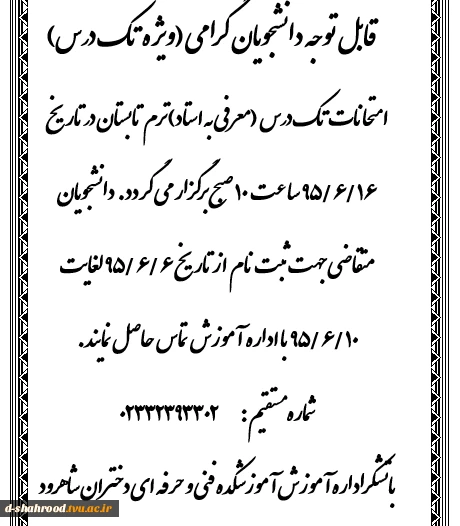 قابل توجه دانشجویان گرامی (ویژه تک درس)
امتحانات تک درس (معرفی به استاد) ترم تابستان در تاریخ
۹۵/۶/۱۶ ساعت ۱۰ صبح برگزار می گردد. دانشجویان
متقاضی جهت ثبت نام از تاریخ ۹۵/۶/۶ لغایت
۹۵/۶/۱۰ با اداره آموزش تماس حاصل نمایند.
شماره مستقیم : ۰۲۳۳۲۳۹۳۳۰۲
با تشکر اداره آموزش آموزشکده فنی و حرفه ای دختران شاهرود
d-shahrood.tvu.ac.ir